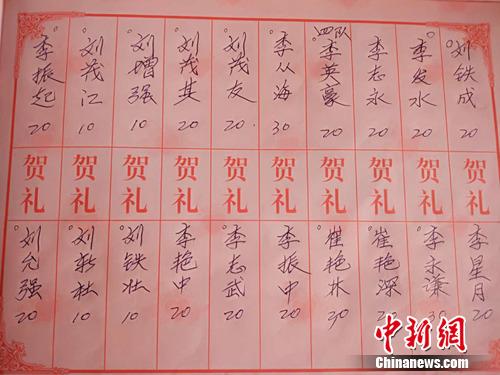 刘铁成 20
李发水 20
李志永 20
四队 李英豪 20
李从海 30
刘茂友 20
刘茂其 20
刘增强 10
刘茂江 10
李振起 20
贺礼 贺礼 贺礼 贺礼 贺礼 贺礼 贺礼 贺礼 贺礼 贺礼
李星月 20
李永谦 30
崔艳深
崔艳林 30
李振中 20
李志武 20
李艳中 20
刘铁壮 10
刘新壮 10
刘允强 20
中新网
Chinanews.com